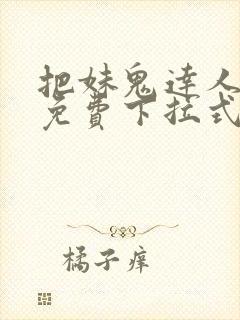 把妹鬼達人
免費下拉式
橘子痒